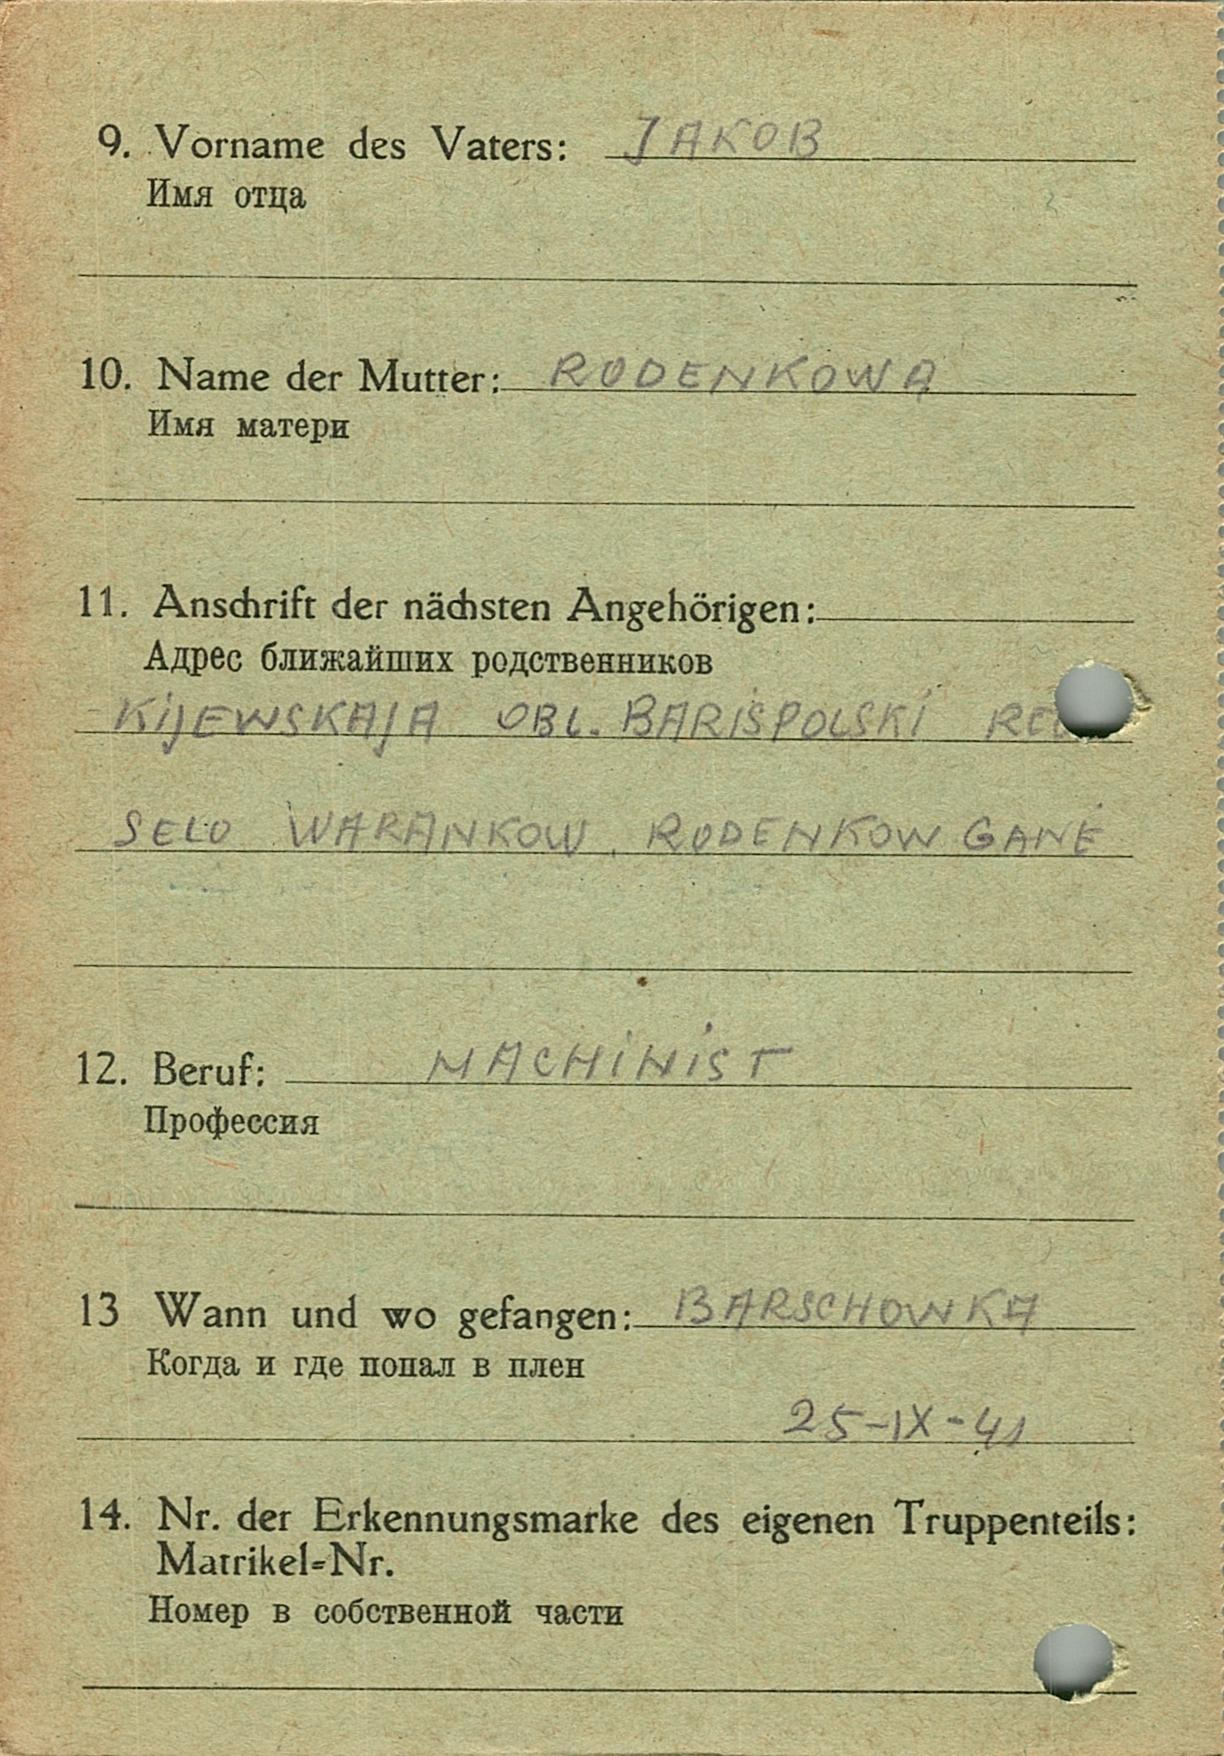 9. Vorname des Vaters: JAKOB
Имя отца
10. Name der Mutter: RODENKOWA
Имя матери
11. Anschrift der nächsten Angehörigen:
Адрес ближайших родственников
KIJEWSKAJA OBL. BARISPOLSKI
SELO WARANKOW, RODENKOW GANE
12. Beruf: MACHINIST
Профессия
13 Wann und wo gefangen: BARSCHOWKA
Когда и где попал в плен
25-IX-41
14. Nr. der Erkennungsmarke des eigenen Truppenteils:
Matrikel-Nr.
Номер в собственной части